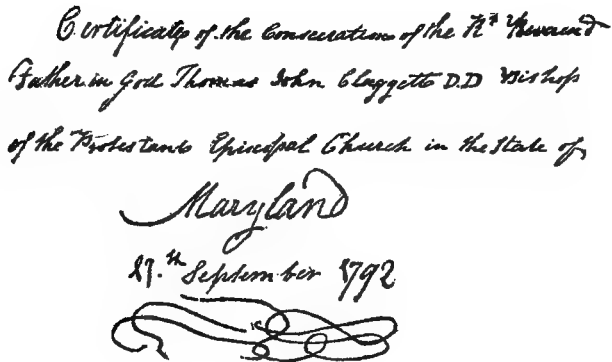 Certificate of the Consecration of the Rt. Reverend
Father in God Thomas John Claggett D.D Bishop
of the Protestant Episcopal Church in the State of
Maryland
17.th September 1792